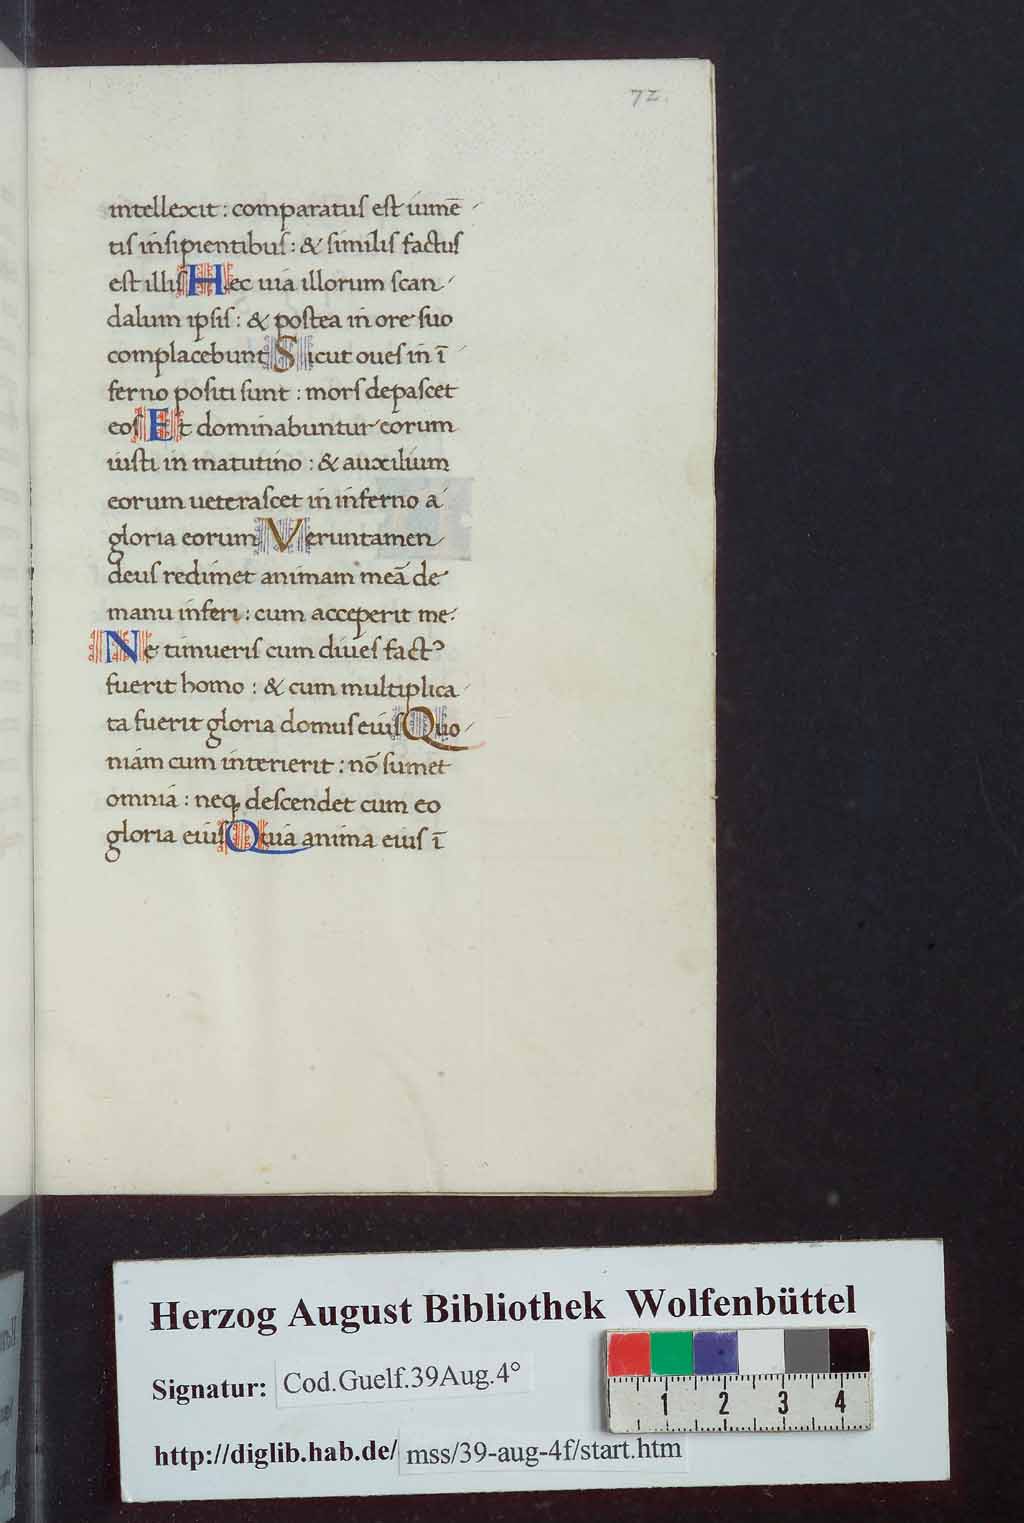 72.
intellexit : comparatus est iumē
tis insipientibus : & similis factus
est illis Hec uia illorum scan
dalum ipsis : & postea in ore suo
complacebunt Sicut oues in ī
ferno positi sunt : mors depascet
eos Et dominabuntur eorum
iusti in matutino : & auxilium
eorum ueterascet in inferno a
gloria eorum Veruntamen
deus redimet animam meā de
manu inferi : cum acceperit me.
Ne timueris cum diues factꝰ
fuerit homo : & cum multiplica
ta fuerit gloria domus eius Quo
niam cum interierit : nō sumet
omnia : neqꝫ descendet cum eo
gloria eius Quia anima eius ī
Herzog August Bibliothek Wolfenbüttel
Signatur: Cod.Guelf.39Aug.4°
1 2 3 4
http://diglib.hab.de/ mss/39-aug-4f/start.htm